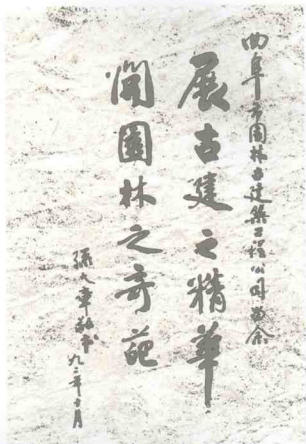 曲阜市園林古建築工程公司留念
展古建之精華
開園林之奇葩
孫大章敬書
九三年十月